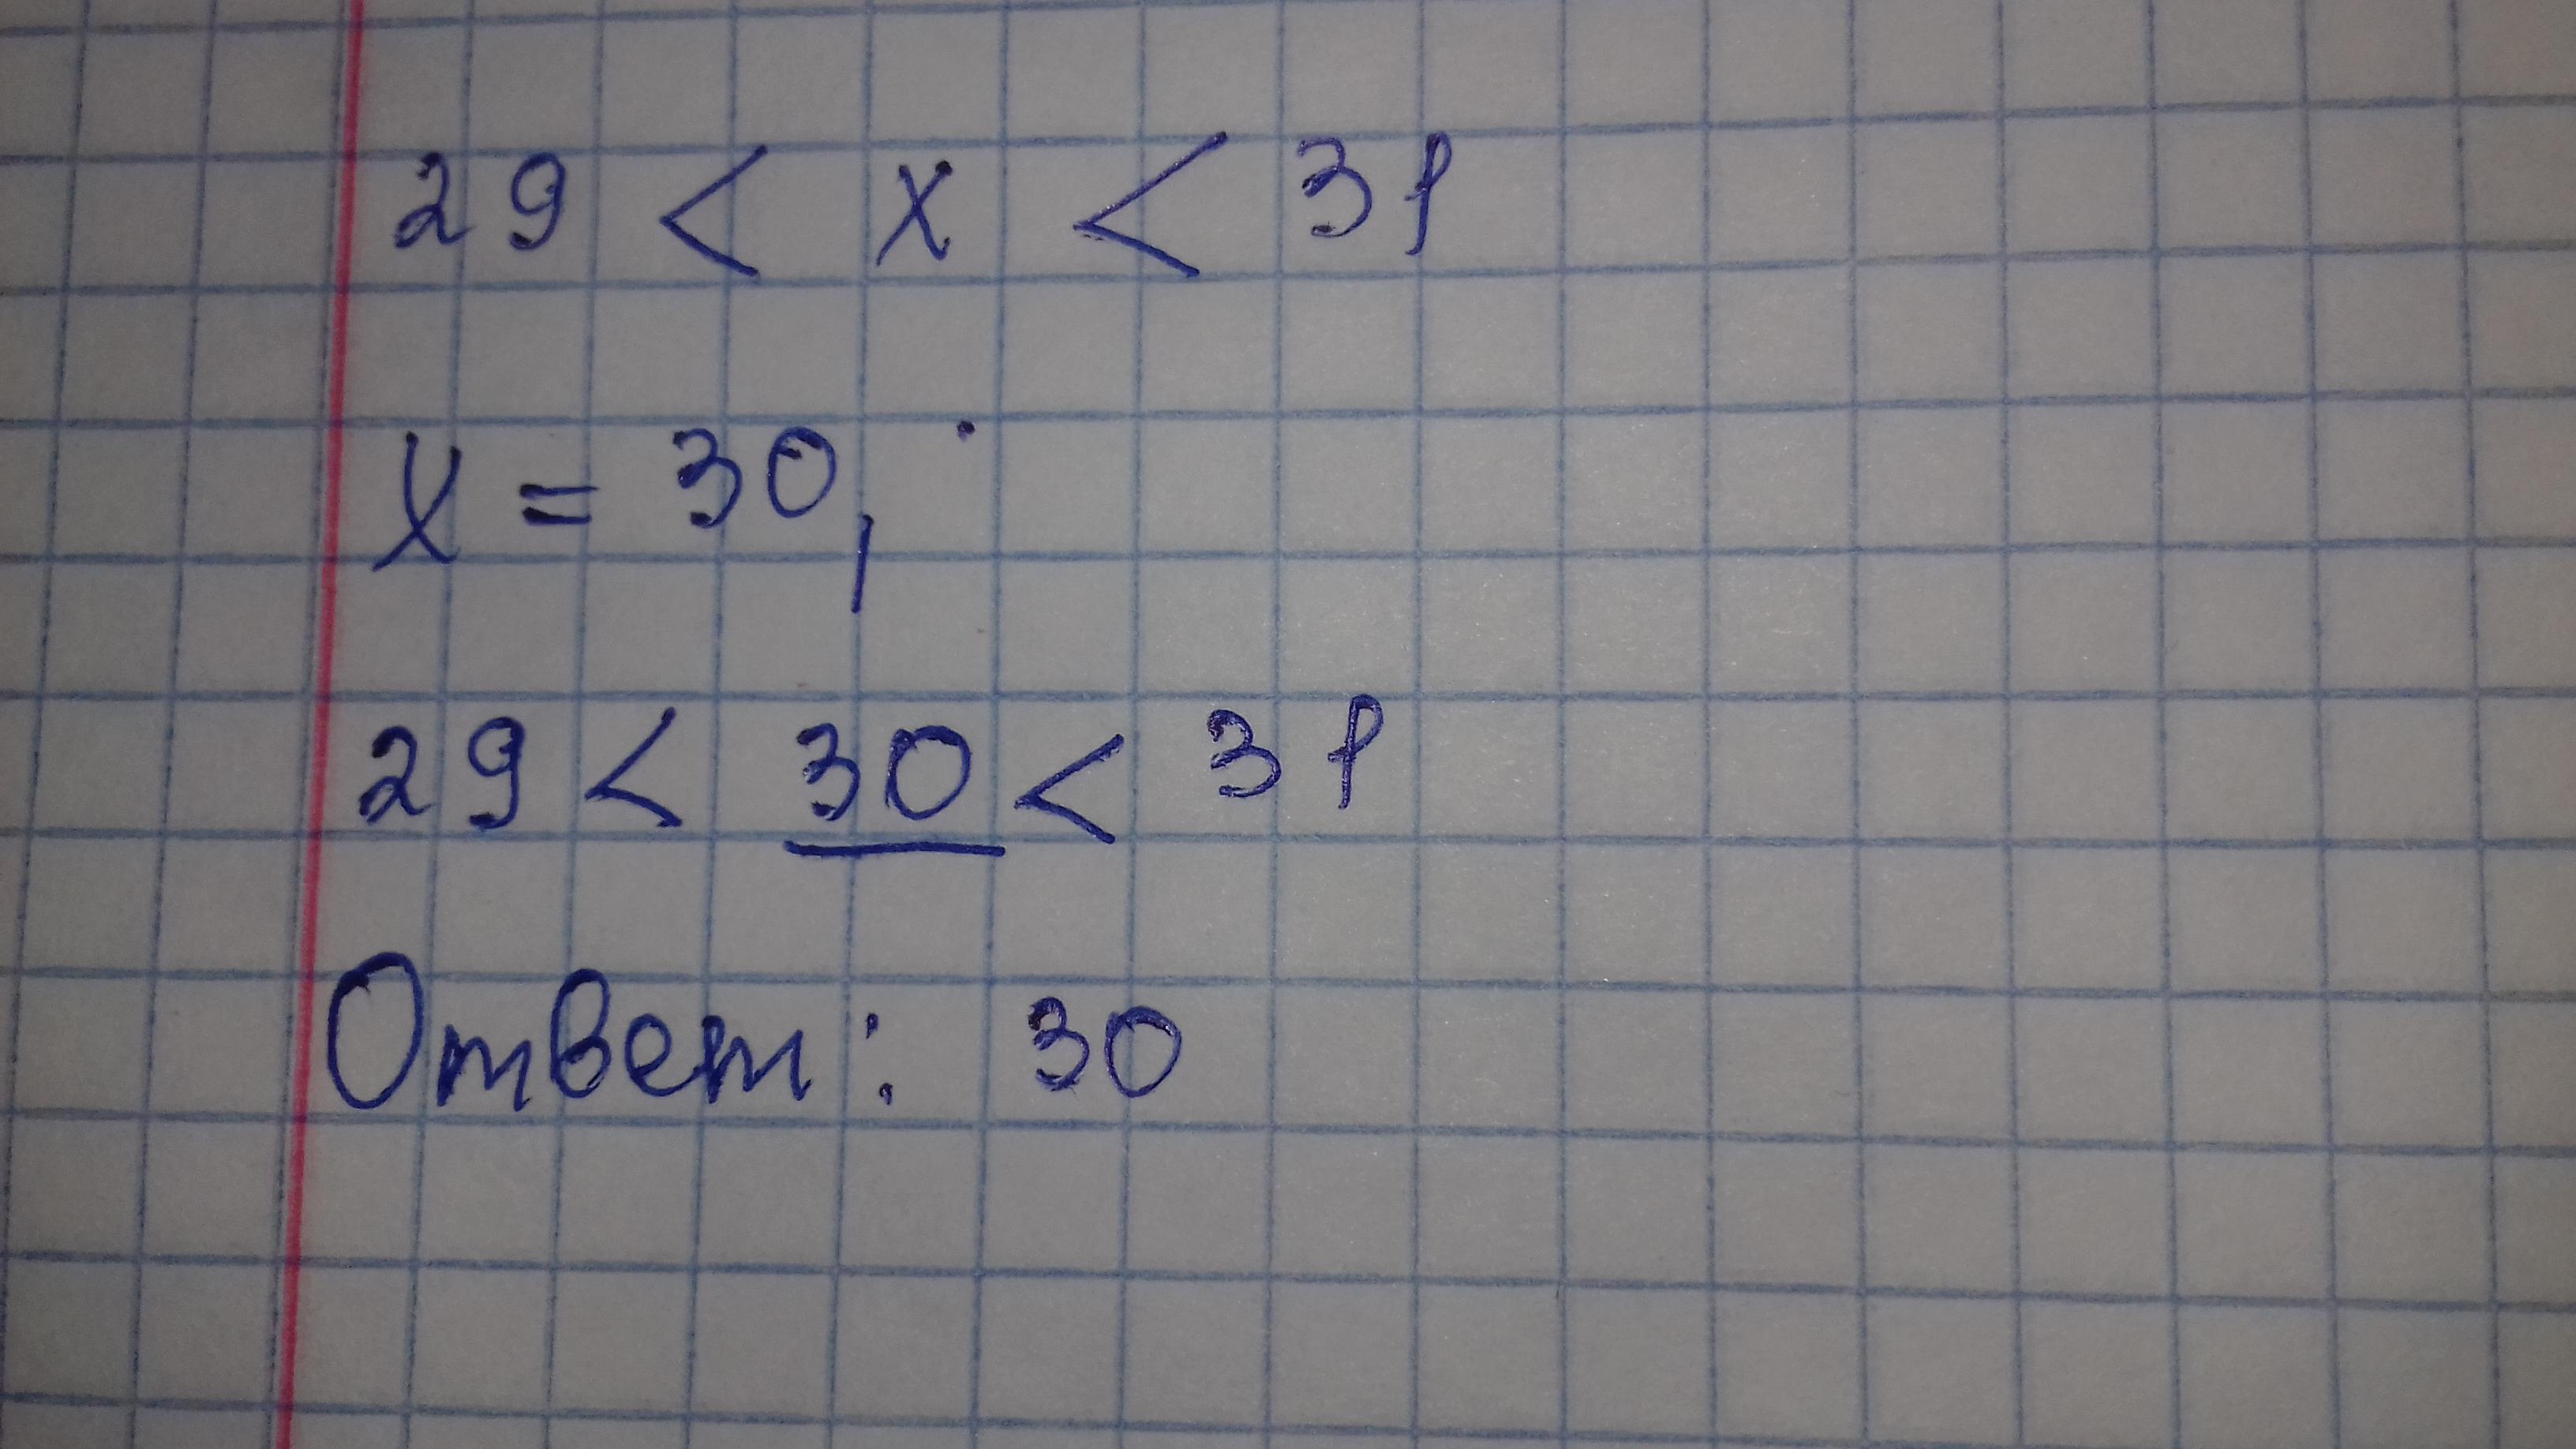 29 < x < 31
x = 30,
29 < 30 < 31
Ответ: 30